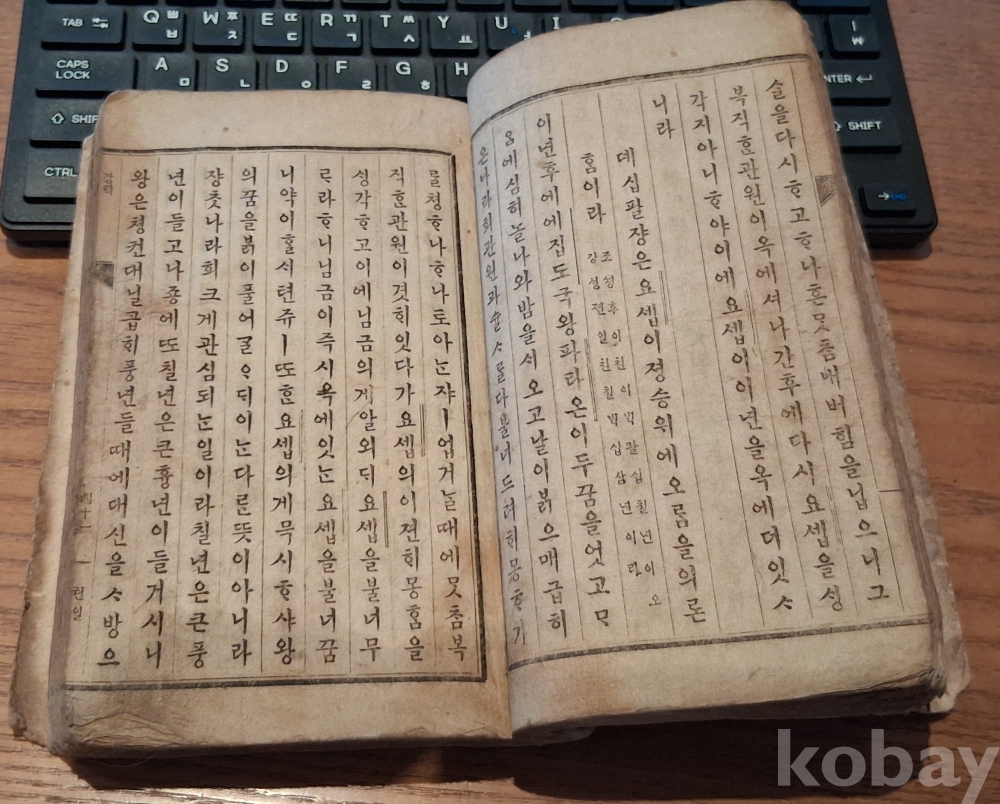 TAB Q ㅃ ㅂ W ㅉ ㅈ E ㄸ ㄷ R ㄲ ㄱ T ㅆ ㅅ Y ㅛ U I
CAPS LOCK A ㅁ S ㄴ D ㅇ F ㄹ G ㅎ H ENTER
SHIFT SHIFT
CTRL
슐을다시ᄒᆞ고ᄒᆞ나흔못참내버힘을닙으니그
복직ᄒᆞᆫ관원이옥에셔나간후에다시요셉을ᄉᆡᆼ
각지아니ᄒᆞ야이에요셉이이년을옥에더잇ᄉᆞ
니라
뎨십팔쟝은요셉이졍승위에오름을의론
홈이라
조셩후이쳔이ᄇᆡᆨ팔십칠년이오
강ᄉᆡᆼ젼일쳔칠ᄇᆡᆨ십삼년이라
이년후에에집도국왕파라온이두ᄭᅮᆷ을엇고ᄆᆞ
ᄋᆞᆷ에심히놀나와밤을ᄉᆡ오고날이ᄇᆞᆰ으매급히
온나라희관원과슐ᄉᆞᄅᆞᆯ다불너드려ᄒᆡ몽ᄒᆞ기
ᄅᆞᆯ쳥ᄒᆞ나ᄒᆞ나토아ᄂᆞᆫ쟈ㅣ업거ᄂᆞᆯᄯᅢ에못참복
직ᄒᆞᆫ관원이겻ᄒᆡ잇다가요셉의이젼ᄒᆡ몽홈을
ᄉᆡᆼ각ᄒᆞ고이에님금의게알외ᄃᆡ요셉을불너무
르라ᄒᆞ니님금이즉시옥에잇ᄂᆞᆫ요셉을불너ᄭᅮᆷ
니약이ᄒᆞᆯᄉᆡ텬쥬ㅣᄯᅩᄒᆞᆫ요셉의게묵시ᄒᆞ샤왕
의ᄭᅮᆷ을ᄇᆞᆰ이풀어ᄀᆞᆯᄋᆞᄃᆡ이ᄂᆞᆫ다른ᄯᅳᆺ이아니라
쟝ᄎᆞᆺ나라희크게관심되ᄂᆞᆫ일이라칠년은큰풍
년이들고나죵에ᄯᅩ칠년은큰흉년이들거시니
왕은쳥컨대닐곱ᄒᆡ풍년들ᄯᅢ에대신을ᄉᆞ방으
권일
kobay